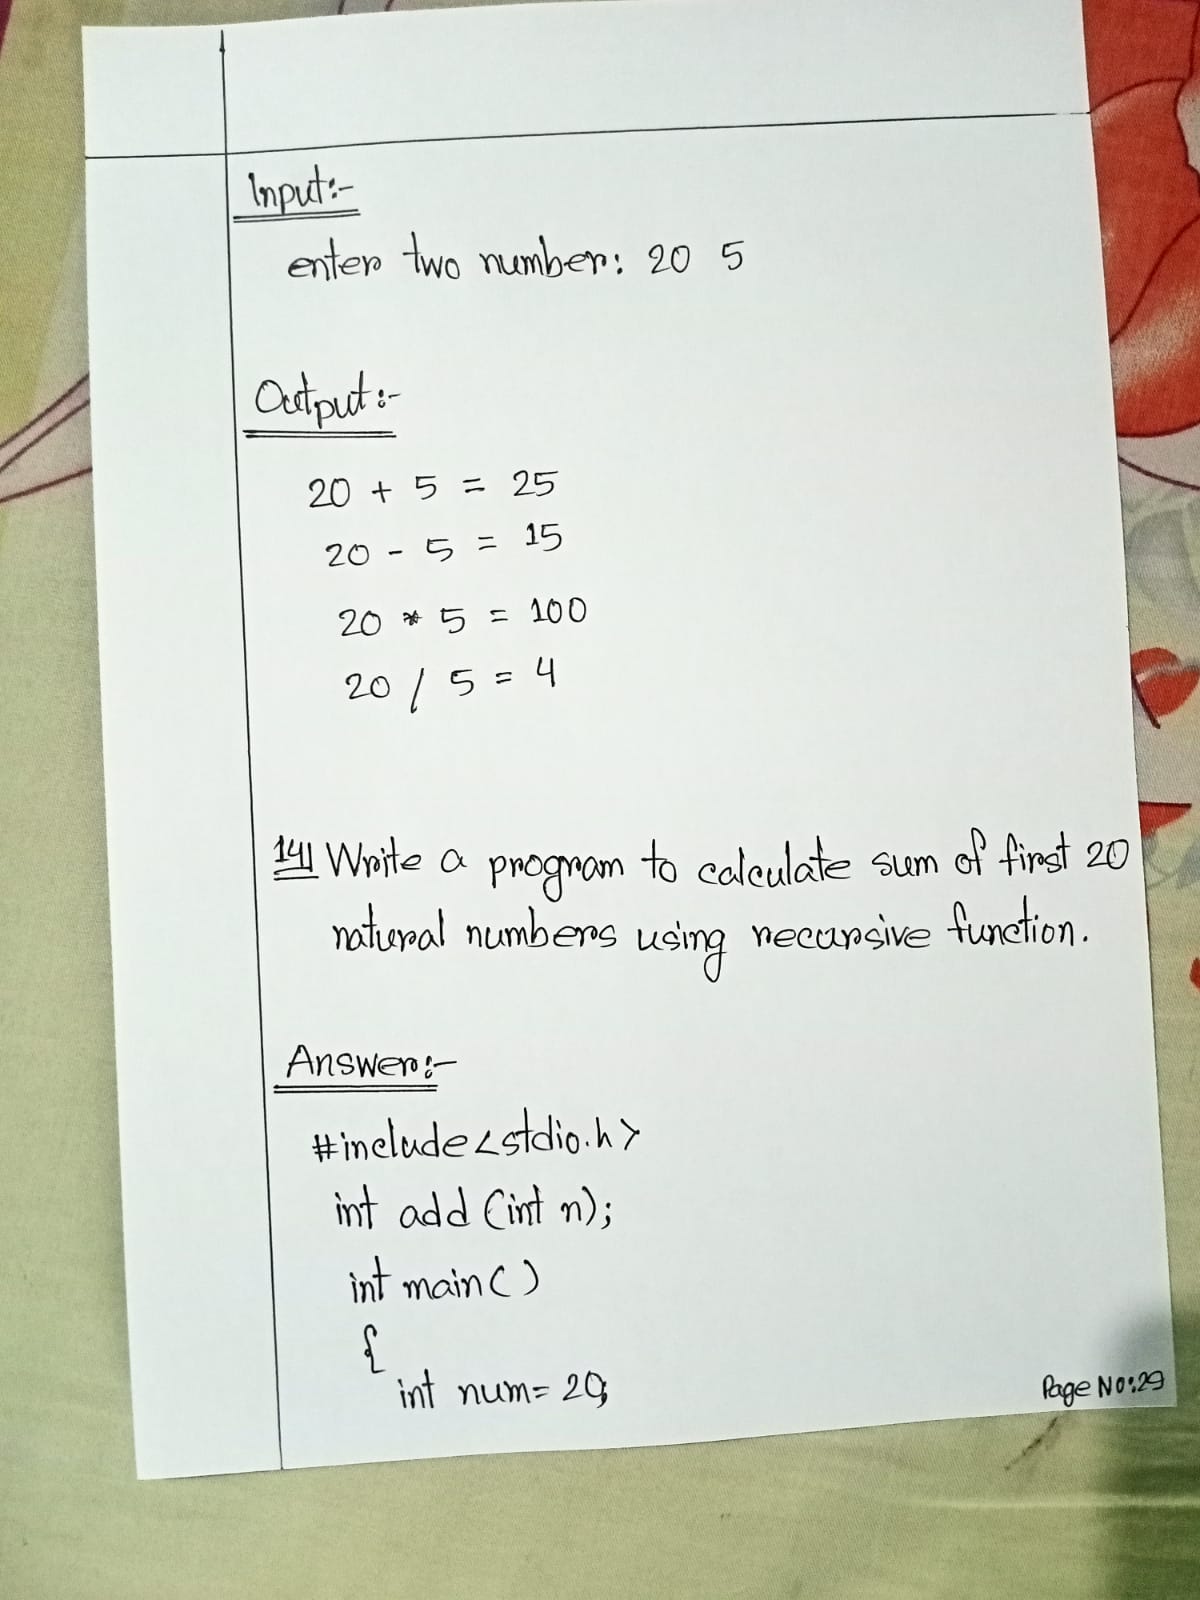 Input:-
enter two number: 20 5
Output:-
20 + 5 = 25
20 - 5 = 15
20 * 5 = 100
20 / 5 = 4
14| Write a program to calculate sum of first 20
natural numbers using recursive function.
Answer:-
#include<stdio.h>
int add (int n);
int main()
{
int num= 20;
Page No:29